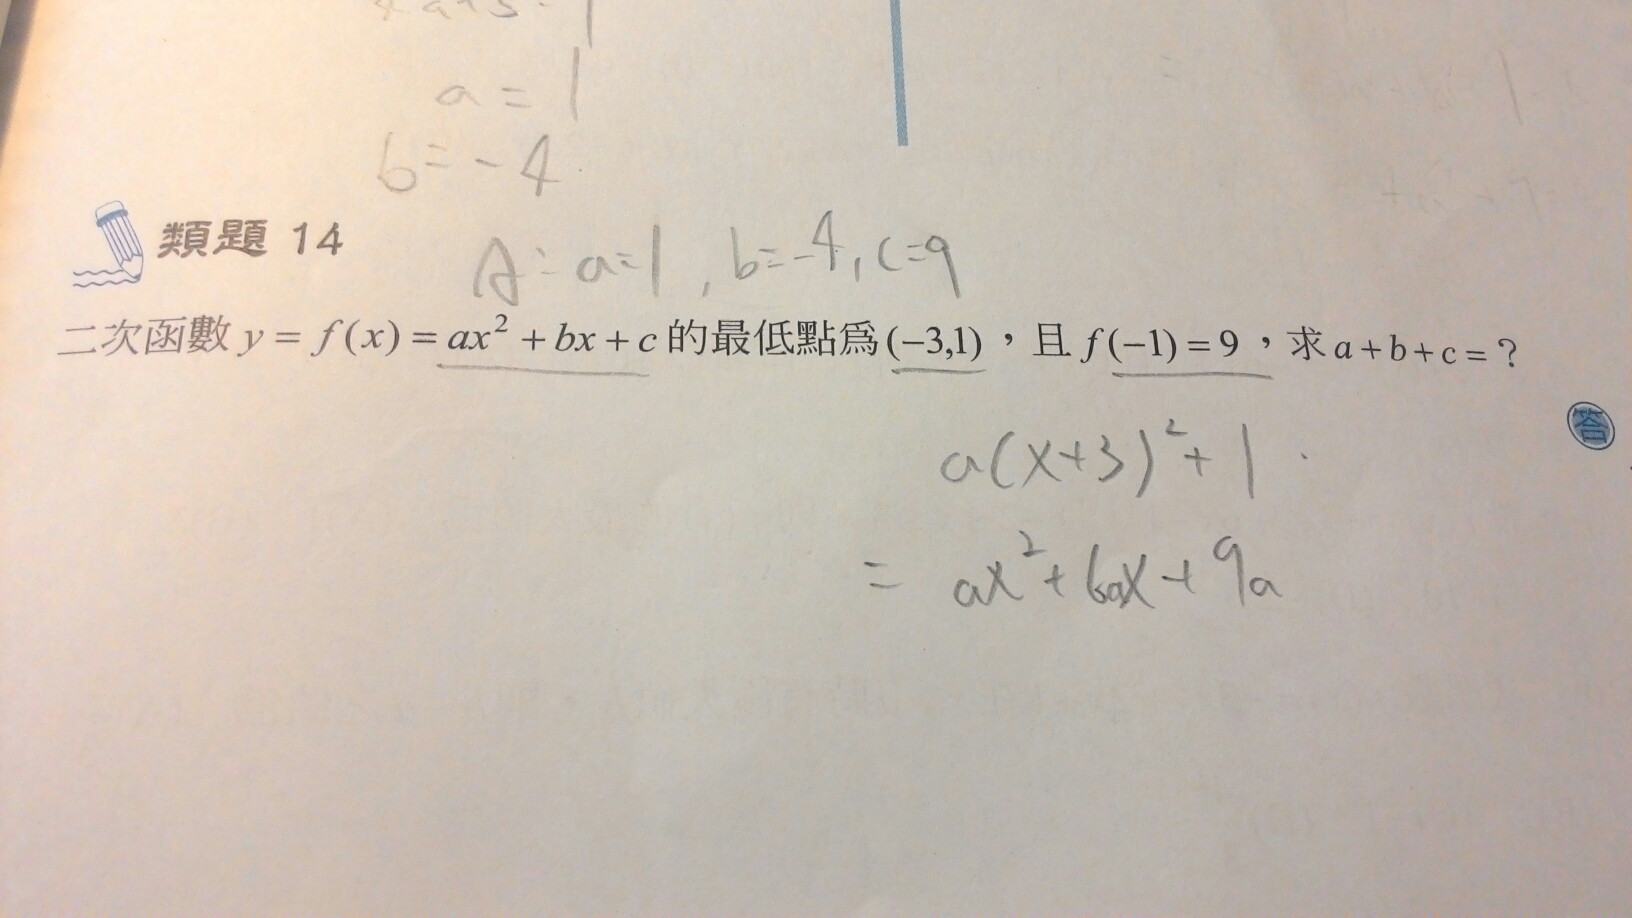 a = 1
b = - 4
類題 14
A: a=1, b=-4, c=9
二次函數 y = f(x) = ax² + bx + c 的最低點為(−3,1),且 f(−1) = 9,求 a + b + c = ?
答
a(x+3)² + 1
= ax² + 6ax + 9a